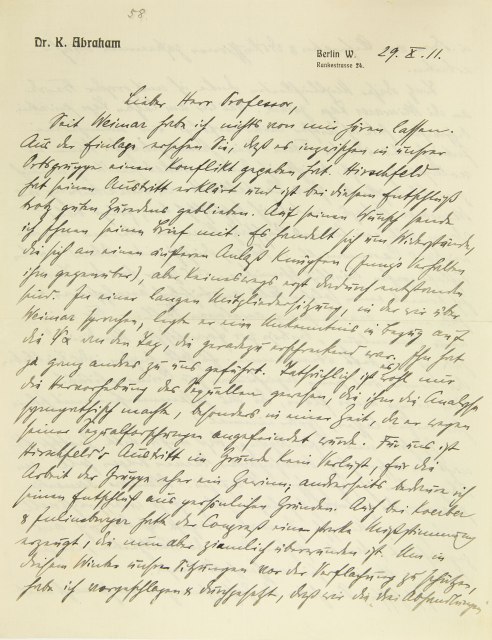 58
Dr. K. Abraham
Berlin W. 29. X. 11.
Rankestrasse 24.
Lieber Herr Professor,
Seit Weimar habe ich nichts von mir hören lassen.
Aus der Einlage ersehen Sie, daß es inzwischen in unsrer
Ortsgruppe einen Konflikt gegeben hat. Hirschfeld
hat seinen Austritt erklärt und ist bei diesem Entschluß
trotz guten Zuredens geblieben. Auf seinen Wunsch sende
ich Ihnen seinen Brief mit. Es handelt sich um Widerstände,
die sich an einen äußeren Anlaß knüpfen (Jungs Verhalten
ihm gegenüber), aber keineswegs erst dadurch entstanden
sind. In einer langen Mitgliedersitzung, in der wir über
Weimar sprachen, legte er eine Unkenntnis in bezug auf
die ΨA an den Tag, die geradezu erschreckend war. Ihn hat
ja ganz andres zu uns geführt. Tatsächlich ist es wohl nur
die Hervorhebung des Sexuellen gewesen, die ihm die Analyse
sympathisch machte, besonders in einer Zeit, da er wegen
seiner Sexualforschungen angefeindet wurde. Für uns ist
Hirschfeld's Austritt im Grunde kein Verlust, für die
Arbeit der Gruppe eher ein Gewinn; anderseits bedaure ich
seinen Entschluß aus persönlichen Gründen. Auch bei Koerber
& Juliusburger hatte der Congreß eine starke Mißstimmung
erzeugt, die nun aber ziemlich überwunden ist. Um in
diesem Winter unsere Sitzungen vor der Verflachung zu schützen,
habe ich vorgeschlagen & durchgesetzt, daß wir die drei Abhandlungen